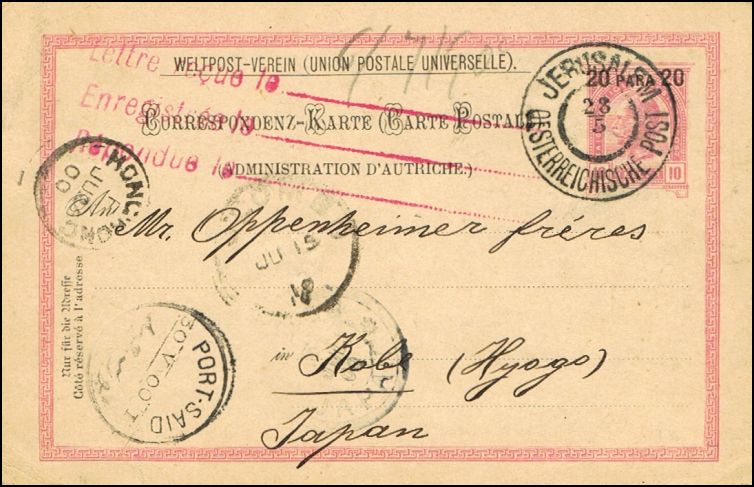 WELTPOST-VEREIN (UNION POSTALE UNIVERSELLE).
Lettre reçue le
Enregistrée le
Répondue le
CORRESPONDENZ-KARTE (CARTE POSTALE)
(ADMINISTRATION D'AUTRICHE).
20 PARA 20
10
JERUSALEM
28
5
OESTERREICHISCHE POST
HONG KONG
JU
00
JU 15
Mr. Oppenheimer fréres
in Kobe (Hyogo)
Japan
PORT-SAID
30 V 00
Nur für die Adresse
Côté réservé à l'adresse